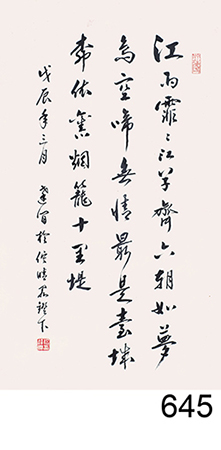 江雨霏〻江草齊六朝如夢
鳥空啼無情最是臺城
柳依舊烟籠十里堤
戊辰年三月
於 燈下
645